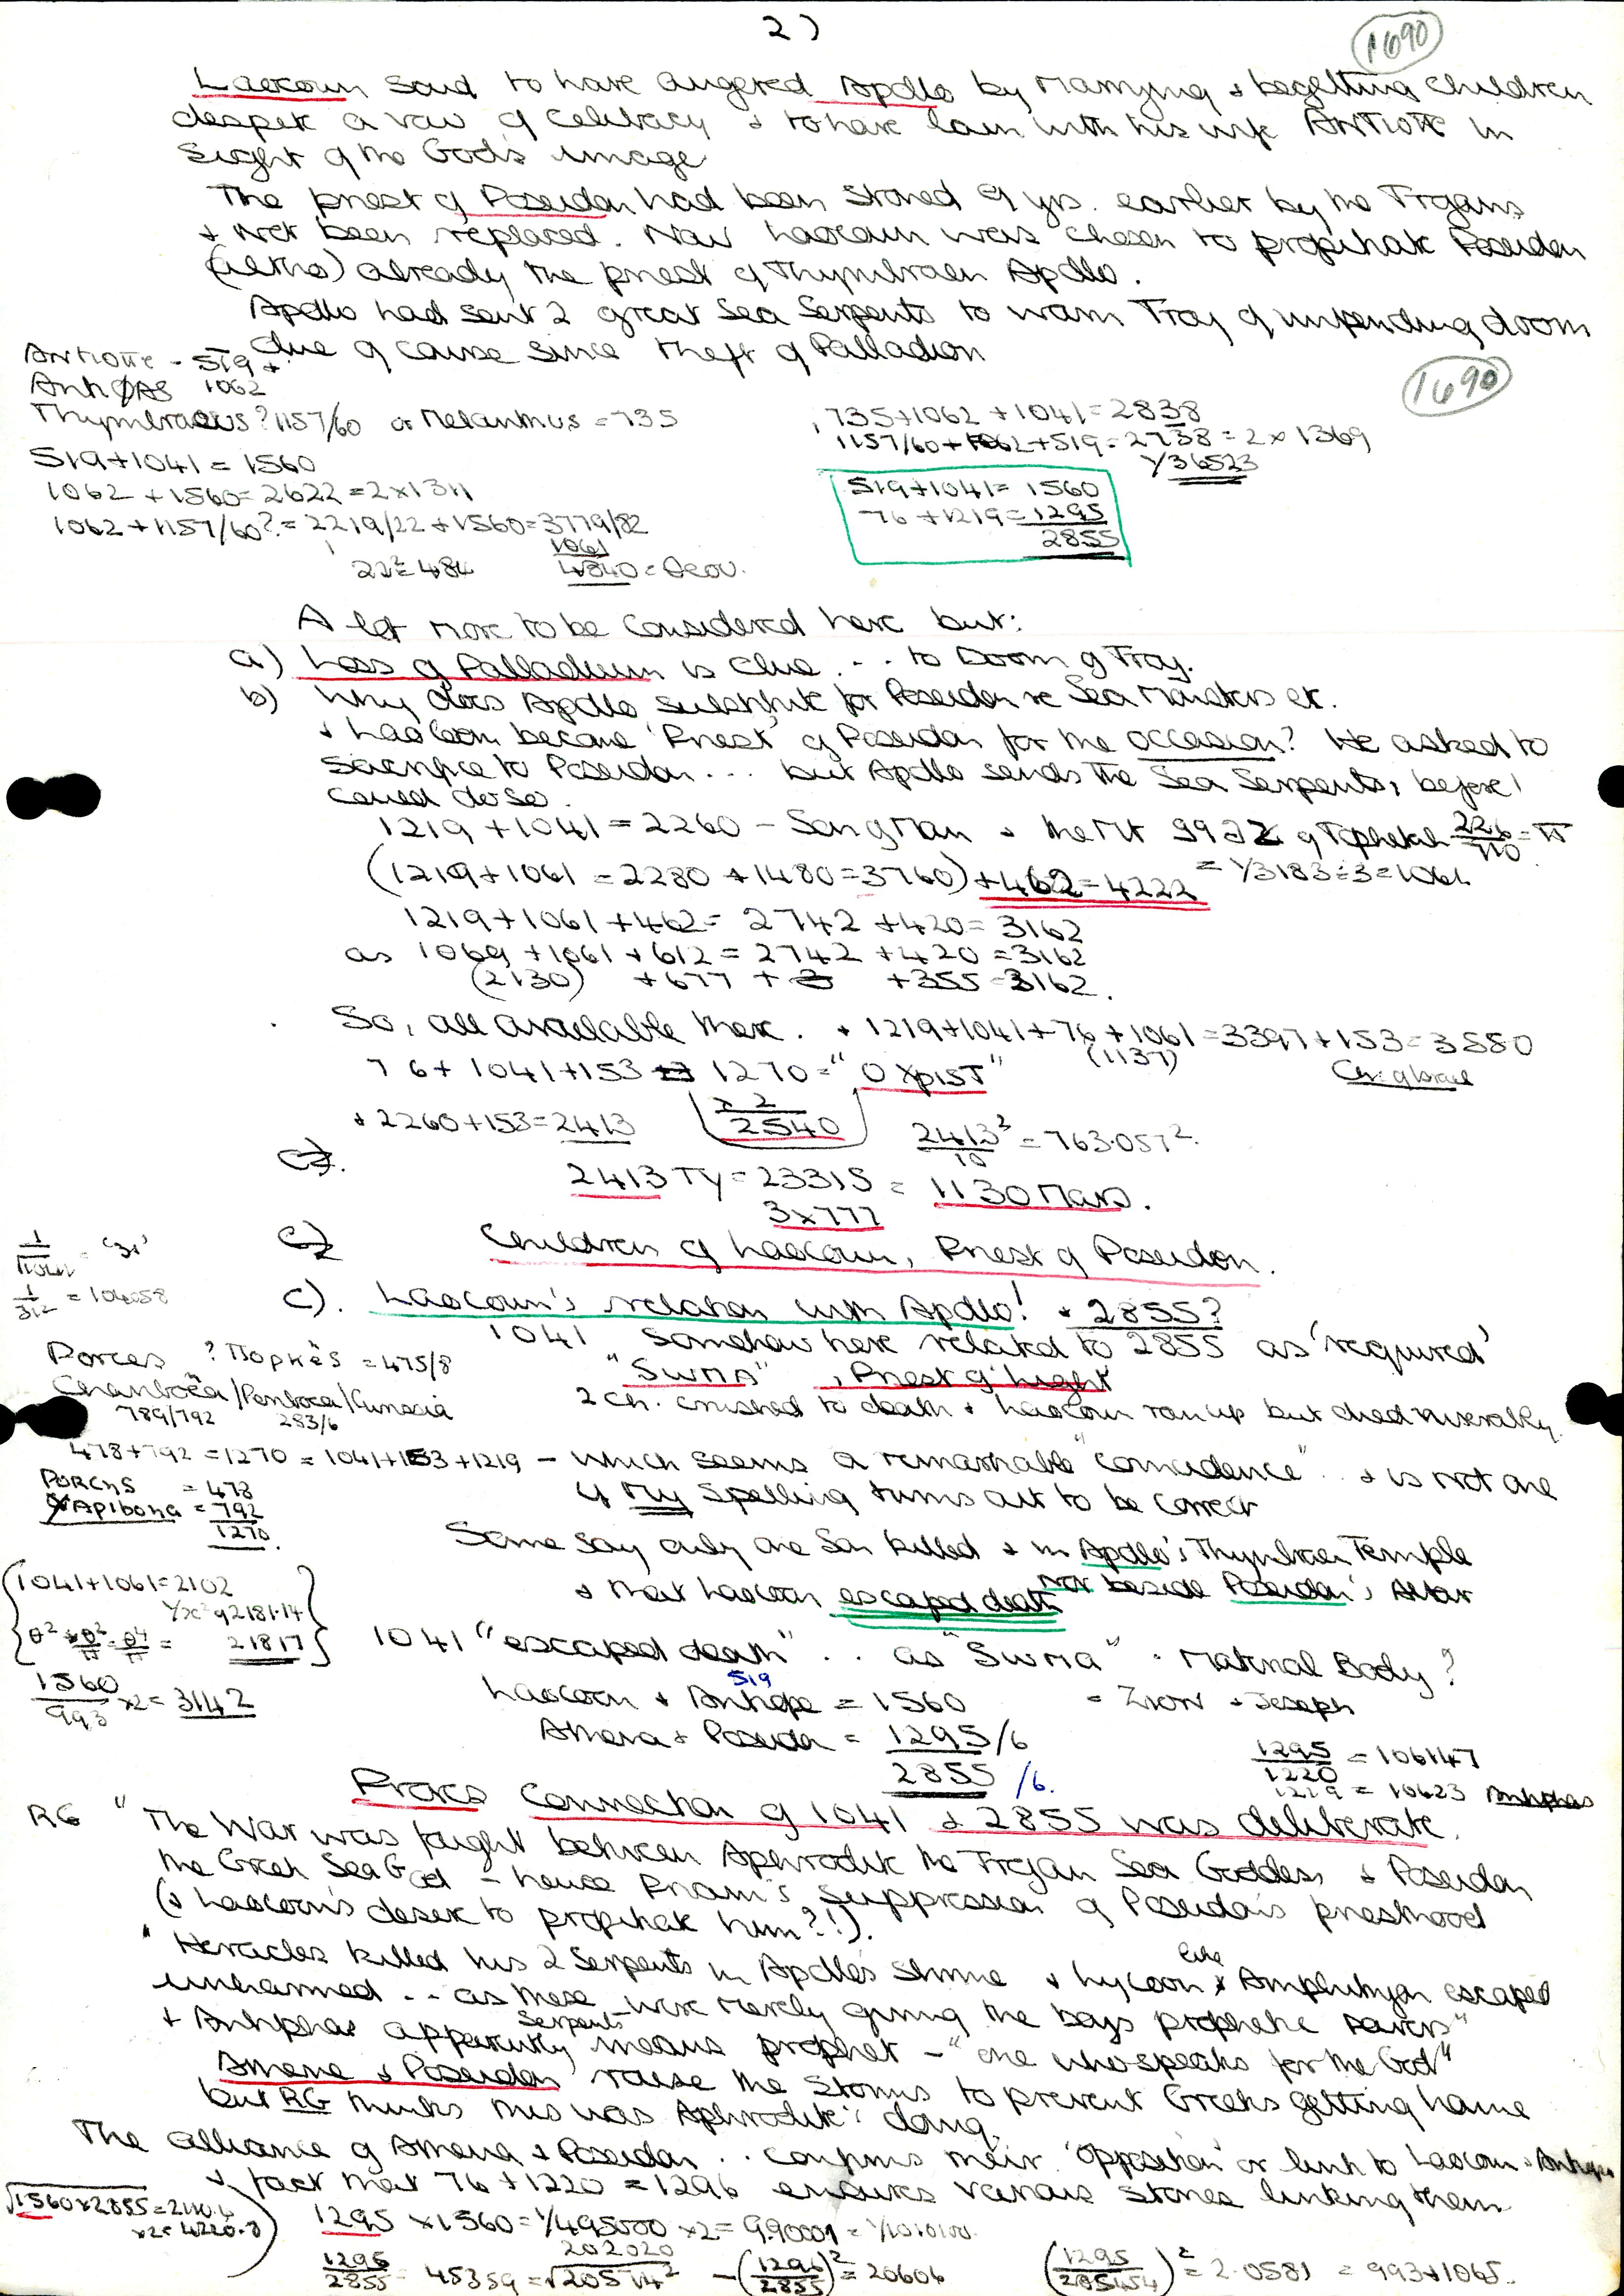 2)
1690
Laocoon said to have angered Apollo by marrying & begetting children
despite a vow of celibacy & to have lain with his wife Antiope in
sight of the God's image
The priest of Poseidon had been stoned 9 yrs. earlier by the Trojans
& not been replaced. Now Laocoon was chosen to propitiate Poseidon
(altho) already the priest of Thymbraean Apollo.
Apollo had sent 2 great Sea Serpents to warn Troy of impending doom
due of course since theft of Palladion
1690
Antiope - 519 +
1062
Thymbraeus? 1157/60 or Melanthus = 735
519+1041 = 1560
1062 + 1560 = 2622 = 2x1311
1062 + 1157/60? = 2219/22 + 1560 = 3779/82
22² = 484
1061
4840 = θεου.
735+1062 +1041 = 2838
1157/60+1062+519 = 2738 = 2 x 1369
1/36523
519+1041 = 1560
76 +1219 = 1295
2855
A lot more to be considered here but:
a) Loss of Palladium is clue . . . to Doom of Troy.
b) Why does Apollo substitute for Poseidon re Sea Monsters etc.
& Laocoon become 'Priest' of Poseidon for the occasion? He asked to
sacrifice to Poseidon . . . but Apollo sends the Sea Serpents, before!
could do so.
1219 + 1041 = 2260 - Son of Man & the Mt 992 of Tophetah
(1219+1061 = 2280 +1480 = 3760) +462 = 4222
= 1/3183 ÷ 3 = 1061
1219 +1061 +462 = 2742 +420 = 3162
as 1069 +1061 +612 = 2742 +420 = 3162
(2130) +677 + +355 = 3162.
So, all available there. + 1219+1041+76+1061 = 3397+153 = 3550
(1137)
Ch: of Israel
76 + 1041 +153 = 1270 = "O ΧριsT"
x 2
2540
+ 2260 +153 = 2413
2413²/10 = 763.057².
2413 TY = 23315 = 1130 Mars.
3x777
Children of Laocoon, Priest of Poseidon.
1/312 = 104058
c). Laocoon's relation with Apollo! & 2855?
1041 Somehow here related to 2855 as 'required'
"SWMA" , Priest of light
2 ch. crushed to death & Laocoon ran up but died miserably.
Porces ? Πορκēs = 475/8
Chariboea/Periboea/Curissia
789/792 283/6
478+792 = 1270 = 1041+153+1219 - which seems a remarkable "coincidence" . & is not one
if my spelling turns out to be correct
PORCHS = 478
XApiboηa = 792
1270.
Some say only one son killed & in Apollo's Thymbraean Temple
not beside Poseidon's Altar
& that Laocoon escaped death
1041+1061 = 2102
21817
1560/993 x2 = 3142
1041 "escaped death" . . as "SWMA" . Material Body?
519
Laocoon & Antiope = 1560 = Zion & Joseph
Athena & Poseidon = 1295/6
2855 /6.
1295/1220 = 106147
1219 = 10623 Antiphas
Proves connection of 1041 & 2855 was deliberate.
RG "The War was fought between Aphrodite the Trojan Sea Goddess & Poseidon
the Greek Sea God - hence Priam's suppression of Poseidon's priesthood
(& Laocoon's desire to propitiate him?!).
" Heracles killed his 2 Serpents in Apollo's Shrine & Laocoon like Amphitryon escaped
unharmed . . as these Serpents were merely giving the boys prophetic powers"
+ Antiphas apparently means prophet - "one who speaks for the God"
Athene & Poseidon raise the storms to prevent Greeks getting home
but RG thinks this was Aphrodite's doing.
The alliance of Athena & Poseidon . . confirms their 'opposition' or link to Laocoon & Antiope
& fact that 76 + 1220 = 1296 ensures various stories linking them
√1560x2855 = 2110.4
x2 = 4220.8
1295 x 1560 = 1/495000 x2 = 990001 = 1/1010100.
202020
1295/2855 = 45359 = √20514² - (1296/2855)² = 20606
(1295/285454)² = 2.0581 = 993+1065.